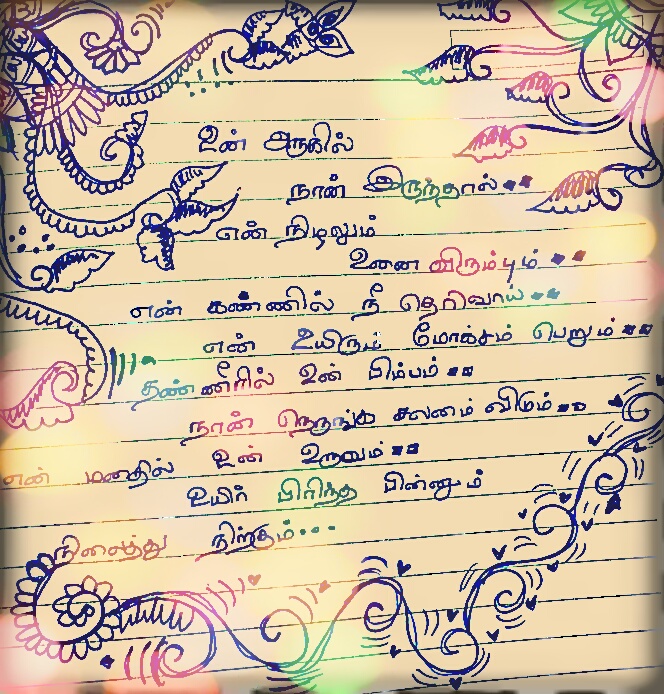 உன் அருகில்
நான் இருந்தால்..
என் நிழலும்
உனை விரும்பும்..
என் கண்ணில் நீ தெரிவாய்..
என் உயிரும் மோக்சம் பெறும்..
தண்ணீரில் உன் பிம்பம்..
நான் நெருங்க சலனம் விடும்..
என் மனதில் உன் உருவம்..
உயிர் பிரிந்த பின்னும்
நிலைத்து நிற்கும்...